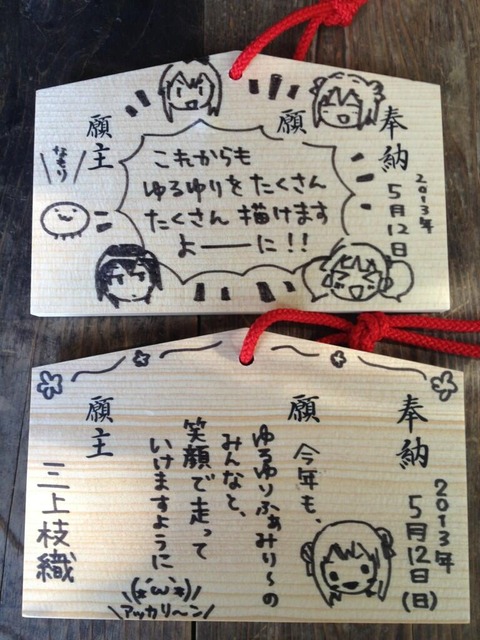 奉納
2013年
5月12日
願
これからも
ゆるゆりをたくさん
たくさん描けます
よーーに!!
願主
なもり
奉納
2013年
5月12日(日)
願
今年も、
ゆるゆりふぁみり〜の
みんなと、
笑顔で走って
いけますように
\(*´ω`*)/
アッカリ〜ン/
願主
三上枝織